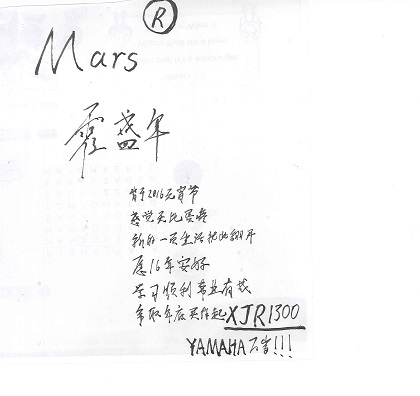 R
Mars
霍盛年
写于2016元宵节
感觉无比
新的一页生活把此翻开
愿16年安好
学习顺利 事业有成
争取年底买得起XJR1300
YAMAHA 万岁!!!